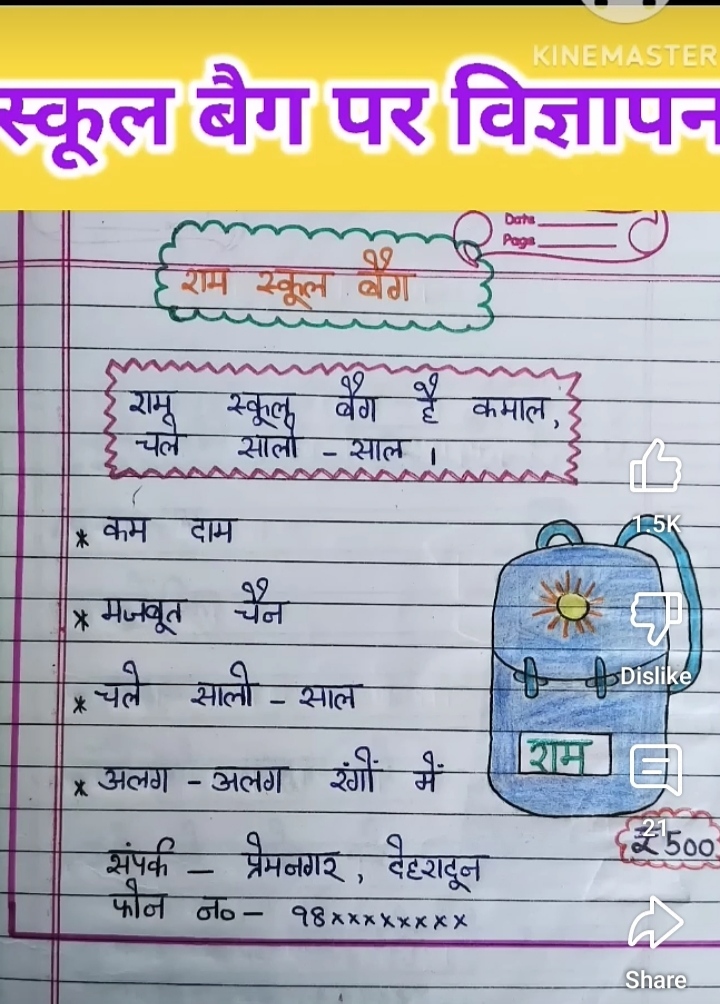 KINEMASTER
स्कूल बैग पर विज्ञापन
Date
Page
राम स्कूल बैग
राम स्कूल बैग है कमाल,
चले सालो - साल ।
* कम दाम
* मजबूत चैन
* चले सालो - साल
* अलग - अलग रंगों में
राम
₹500
संपर्क - प्रेमनगर, देहरादून
फोन न० - 98xxxxxxxx
1.5K
Dislike
21
Share